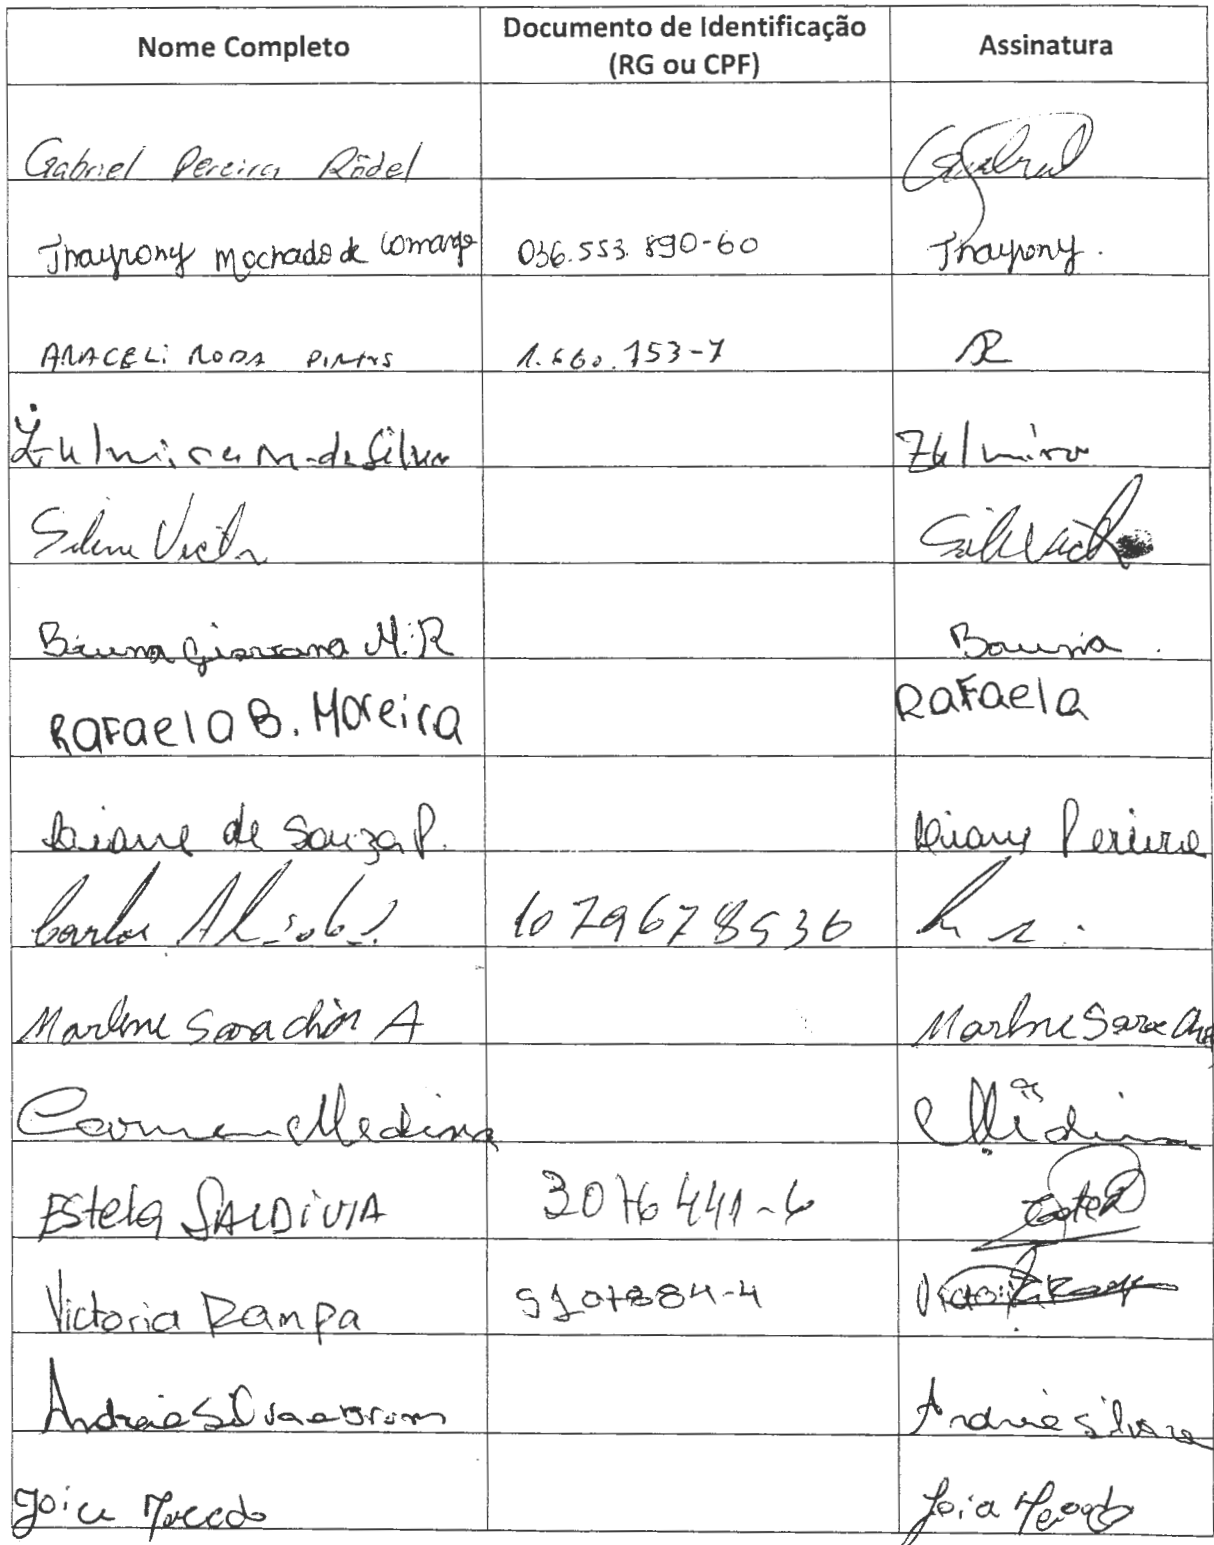 Nome Completo
Documento de Identificação
(RG ou CPF)
Assinatura
Gabriel Pereira Rödel Gabriel
Thayrony Machado de Camargo 036.553.890-60 Thayrony.
ARACELI 1.660.753-7
Zulmira M. da Silva Zulmira
Silene Victor
Bruna Giovana M.R Bruna.
RAFAELA B. Moreira RAFAELA
Daiane de Souza P. Daiane Pereira
Carlos 1079678536
Marlene Sarachón A Marlene
Carmen Medina Medina
Estela SALDiVIA 3076441-6 Estela
Victoria Rampa 5107884-4 Victoria Rampa
Andreia Silva e Brum Andreia Silva
Joice Macedo Joice Macedo